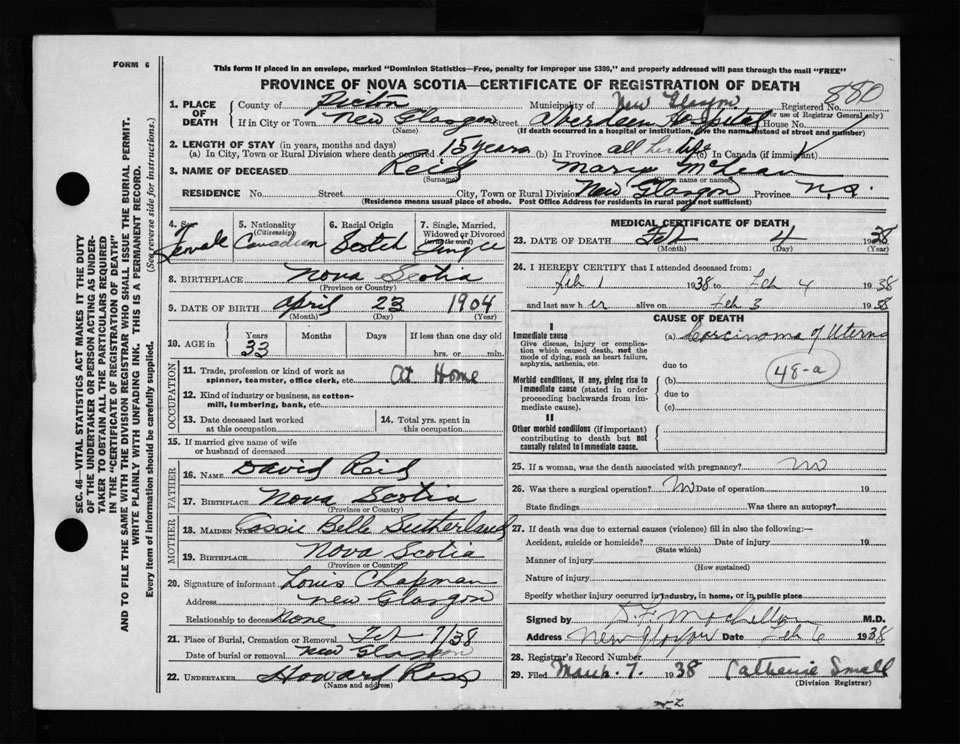 FORM 6
This form if placed in an envelope, marked "Dominion Statistics—Free, penalty for improper use $300," and properly addressed will pass through the mail "FREE"
PROVINCE OF NOVA SCOTIA—CERTIFICATE OF REGISTRATION OF DEATH
880
1. PLACE OF DEATH County of Pictou Municipality of New Glasgow Registered No. (For use of Registrar General only)
If in City or Town New Glasgow Street Aberdeen Hospital House No.
(Name) (If death occurred in a hospital or institution, give the name instead of street and number)
2. LENGTH OF STAY (in years, months and days)
(a) In City, Town or Rural Division where death occurred 15 years (b) In Province all her life (c) In Canada (if immigrant)
3. NAME OF DECEASED Reid Mary McLean
(Surname) (Given name or names)
RESIDENCE No. Street City, Town or Rural Division New Glasgow Province N.S.
(Residence means usual place of abode. Post Office Address for residents in rural parts not sufficient)
4. Sex Female
5. Nationality (Citizenship) Canadian
6. Racial Origin Scotch
7. Single, Married, Widowed or Divorced (write the word) Single
8. BIRTHPLACE Nova Scotia
(Province or Country)
9. DATE OF BIRTH April 23 1904
(Month) (Day) (Year)
10. AGE in Years 33 Months Days If less than one day old hrs. or min.
OCCUPATION
11. Trade, profession or kind of work as spinner, teamster, office clerk, etc. At Home
12. Kind of industry or business, as cotton-mill, lumbering, bank, etc.
13. Date deceased last worked at this occupation
14. Total yrs. spent in this occupation
15. If married give name of wife or husband of deceased
FATHER
16. NAME David Reid
17. BIRTHPLACE Nova Scotia
(Province or Country)
MOTHER
18. MAIDEN NAME Cassie Belle Sutherland
19. BIRTHPLACE Nova Scotia
(Province or Country)
20. Signature of informant Louis Chapman
Address New Glasgow
Relationship to deceased None
21. Place of Burial, Cremation or Removal Feb 7/38
Date of burial or removal New Glasgow
22. UNDERTAKER Howard Ross
(Name and address)
MEDICAL CERTIFICATE OF DEATH
23. DATE OF DEATH Feb 4 1938
(Month) (Day) (Year)
24. I HEREBY CERTIFY that I attended deceased from:
Feb 1 1938 to Feb 4 1938
and last saw her alive on Feb 3 1938
CAUSE OF DEATH
I
Immediate cause (a) Carcinoma of Uterus
Give disease, injury or complication which caused death, not the mode of dying, such as heart failure, asphyxia, asthenia, etc.
due to
48-a
Morbid conditions, if any, giving rise to immediate cause (stated in order proceeding backwards from immediate cause).
(b)
due to
(c)
II
Other morbid conditions (if important) contributing to death but not causally related to immediate cause.
25. If a woman, was the death associated with pregnancy? No
26. Was there a surgical operation? No Date of operation 19
State findings Was there an autopsy?
27. If death was due to external causes (violence) fill in also the following:—
Accident, suicide or homicide? Date of injury 19
(State which)
Manner of injury
(How sustained)
Nature of injury
Specify whether injury occurred in industry, in home, or in public place
Signed by M.D.
Address New Glasgow Date Feb 6 1938
28. Registrar's Record Number
29. Filed March 7. 1938 Catherine Small
(Division Registrar)
SEC. 46—VITAL STATISTICS ACT MAKES IT THE DUTY
OF THE UNDERTAKER OR PERSON ACTING AS UNDER-
TAKER TO OBTAIN ALL THE PARTICULARS REQUIRED
IN THE "CERTIFICATE OF REGISTRATION OF DEATH"
AND TO FILE THE SAME WITH THE DIVISION REGISTRAR WHO SHALL ISSUE THE BURIAL PERMIT.
WRITE PLAINLY WITH UNFADING INK. THIS IS A PERMANENT RECORD.
Every item of information should be carefully supplied. (See reverse side for instructions.)